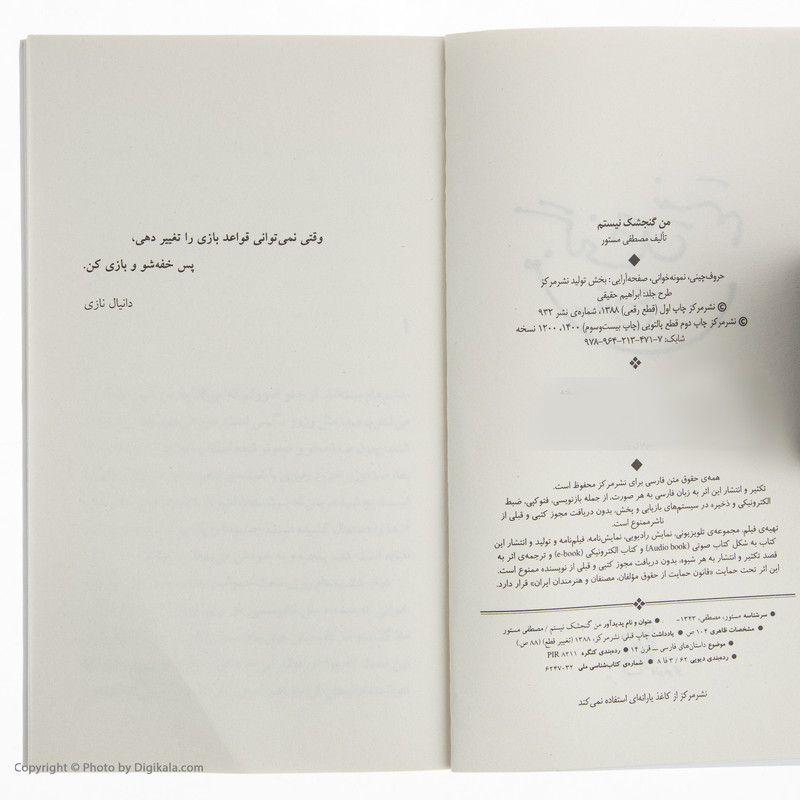 من گنجشک نیستم
تألیف مصطفی مستور
حروف‌چینی، نمونه‌خوانی، صفحه‌آرایی: بخش تولید نشرمرکز
طرح جلد: ابراهیم حقیقی
© نشرمرکز چاپ اول (قطع رقعی) ۱۳۸۸، شماره‌ی نشر ۹۳۲
© نشرمرکز چاپ دوم قطع پالتویی (چاپ بیست‌وسوم) ۱۴۰۰، ۱۲۰۰ نسخه
شابک: ۷-۴۷۱-۲۱۳-۹۶۴-۹۷۸
همه‌ی حقوق متن فارسی برای نشرمرکز محفوظ است.
تکثیر و انتشار این اثر به زبان فارسی به هر صورت، از جمله بازنویسی، فتوکپی، ضبط
الکترونیکی و ذخیره در سیستم‌های بازیابی و پخش، بدون دریافت مجوز کتبی و قبلی از
ناشر ممنوع است.
تهیه‌ی فیلم، مجموعه‌ی تلویزیونی، نمایش رادیویی، نمایش‌نامه، فیلم‌نامه و تولید و انتشار این
کتاب به شکل کتاب صوتی (Audio book) و کتاب الکترونیکی (e-book) و ترجمه‌ی اثر به
قصد تکثیر و انتشار به هر شیوه، بدون دریافت مجوز کتبی و قبلی از نویسنده ممنوع است.
این اثر تحت حمایت «قانون حمایت از حقوق مؤلفان، مصنفان و هنرمندان ایران» قرار دارد.
● سرشناسه مستور، مصطفی، ۱۳۴۳- ● عنوان و نام پدیدآور من گنجشک نیستم / مصطفی مستور
● مشخصات ظاهری ۱۰۴ ص ● یادداشت چاپ قبلی: نشرمرکز، ۱۳۸۸ (تغییر قطع) (۸۸ ص)
● موضوع داستان‌های فارسی ــ قرن ۱۴ ● رده‌بندی کنگره PIR ۸۲۱۱
● رده‌بندی دیویی ۳/۶۲ فا ۸ ● شماره‌ی کتاب‌شناسی ملی ۶۲۴۷۰۳۲
نشرمرکز از کاغذ یارانه‌ای استفاده نمی‌کند
وقتی نمی‌توانی قواعد بازی را تغییر دهی،
پس خفه‌شو و بازی کن.
دانیال نازی
Copyright © Photo by Digikala.com